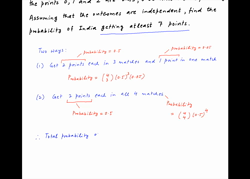 the points 0, 1 and 2 are
Assuming that the outcomes are independent, find the
probability of India getting atleast 7 points.
Two ways:
probability = 0.5
(1) Get 2 points each in 3 matches and 1 point in one match
Probability =
(2) Get 2 points each in all 4 matches
Probability
Probability = 0.5
= (4 4) (0.5)^4
∴ Total probability =